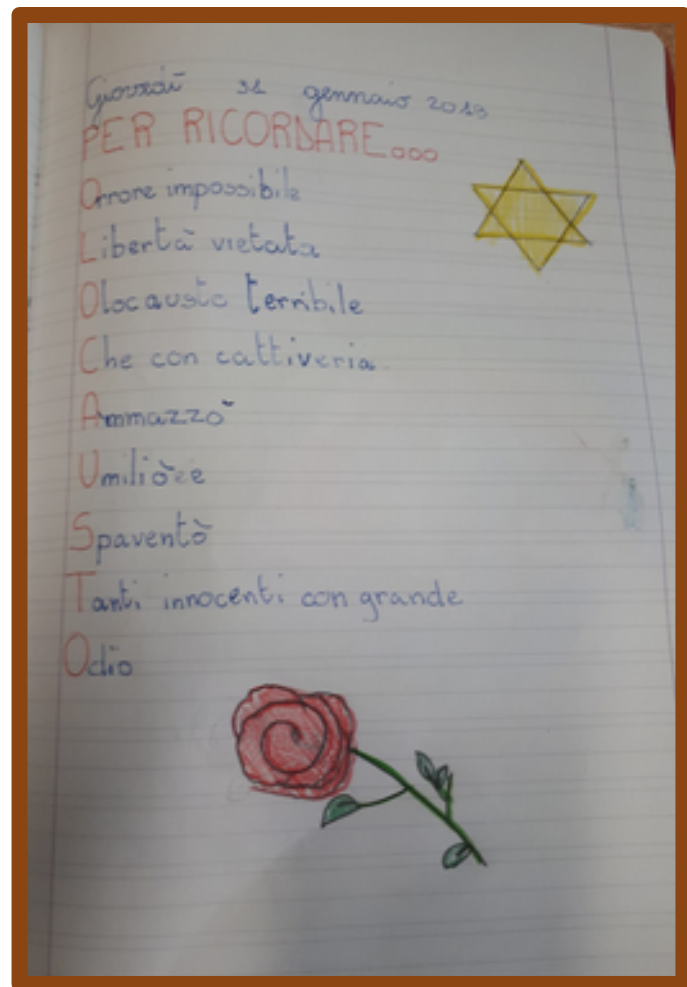 Giovedì 31 gennaio 2019
PER RICORDARE...
Orrore impossibile
Libertà vietata
Olocausto terribile
Che con cattiveria
Ammazzò
Umiliò e
Spaventò
Tanti innocenti con grande
Odio